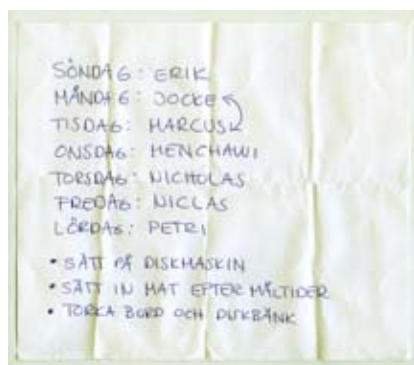 SÖNDAG: ERIK
MÅNDAG: JOCKE
TISDAG: MARCUS
ONSDAG: MENCHAWI
TORSDAG: NICHOLAS
FREDAG: NICLAS
LÖRDAG: PETRI
• SÄTT PÅ DISKMASKIN
• SÄTT IN MAT EFTER MÅLTIDER
• TORKA BORD OCH DISKBÄNK